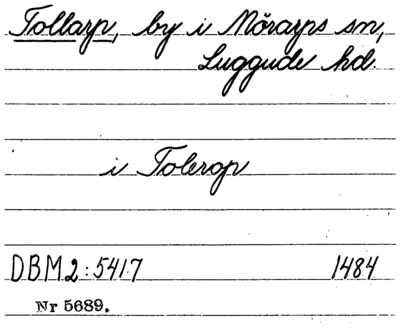 Tollarp, by i Mörarps sn,
Luggude hd.
i Tolerop
DBM2:5417 1484
Nr 5689.